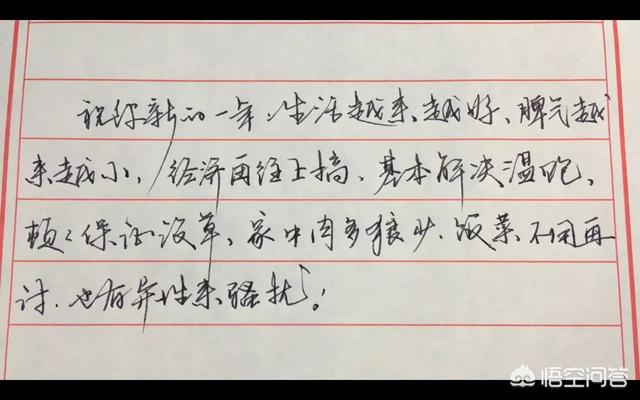 祝你新的一年,生活越来越好、脾气越
来越小,经济再往上搞、基本解决温饱、
顿々保证没草、家中肉多狼少、饭菜不用再
讨、也有异性来骚扰!
悟空问答